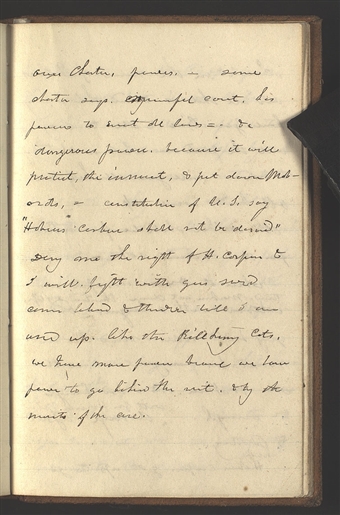 over Charter, powers, = some
charter says. court, his
powers to all laws = &
dangerous power. because it will
protect, the innocent, & put down Mob-
= constitution of U.S. say
"Habeus Corpus shall not be denied"
Deny me the right of H. Corpus &
I will fight with gun sword
cannon & thunder till I am
used up. like the Killkenny Cats,
we have more power because we have
power to go behind the writ. & try the
merits of the case.